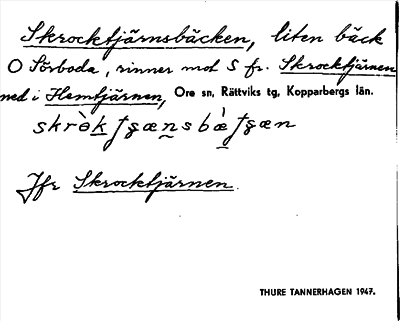 Skrocktjärnsbäcken, liten bäck
O Sörboda, rinner mot S fr. Skrocktjärnen
ned i Hemtjärnen, Ore sn, Rättviks tg, Kopparbergs län.
Jfr Skrocktjärnen.
THURE TANNERHAGEN 1947.